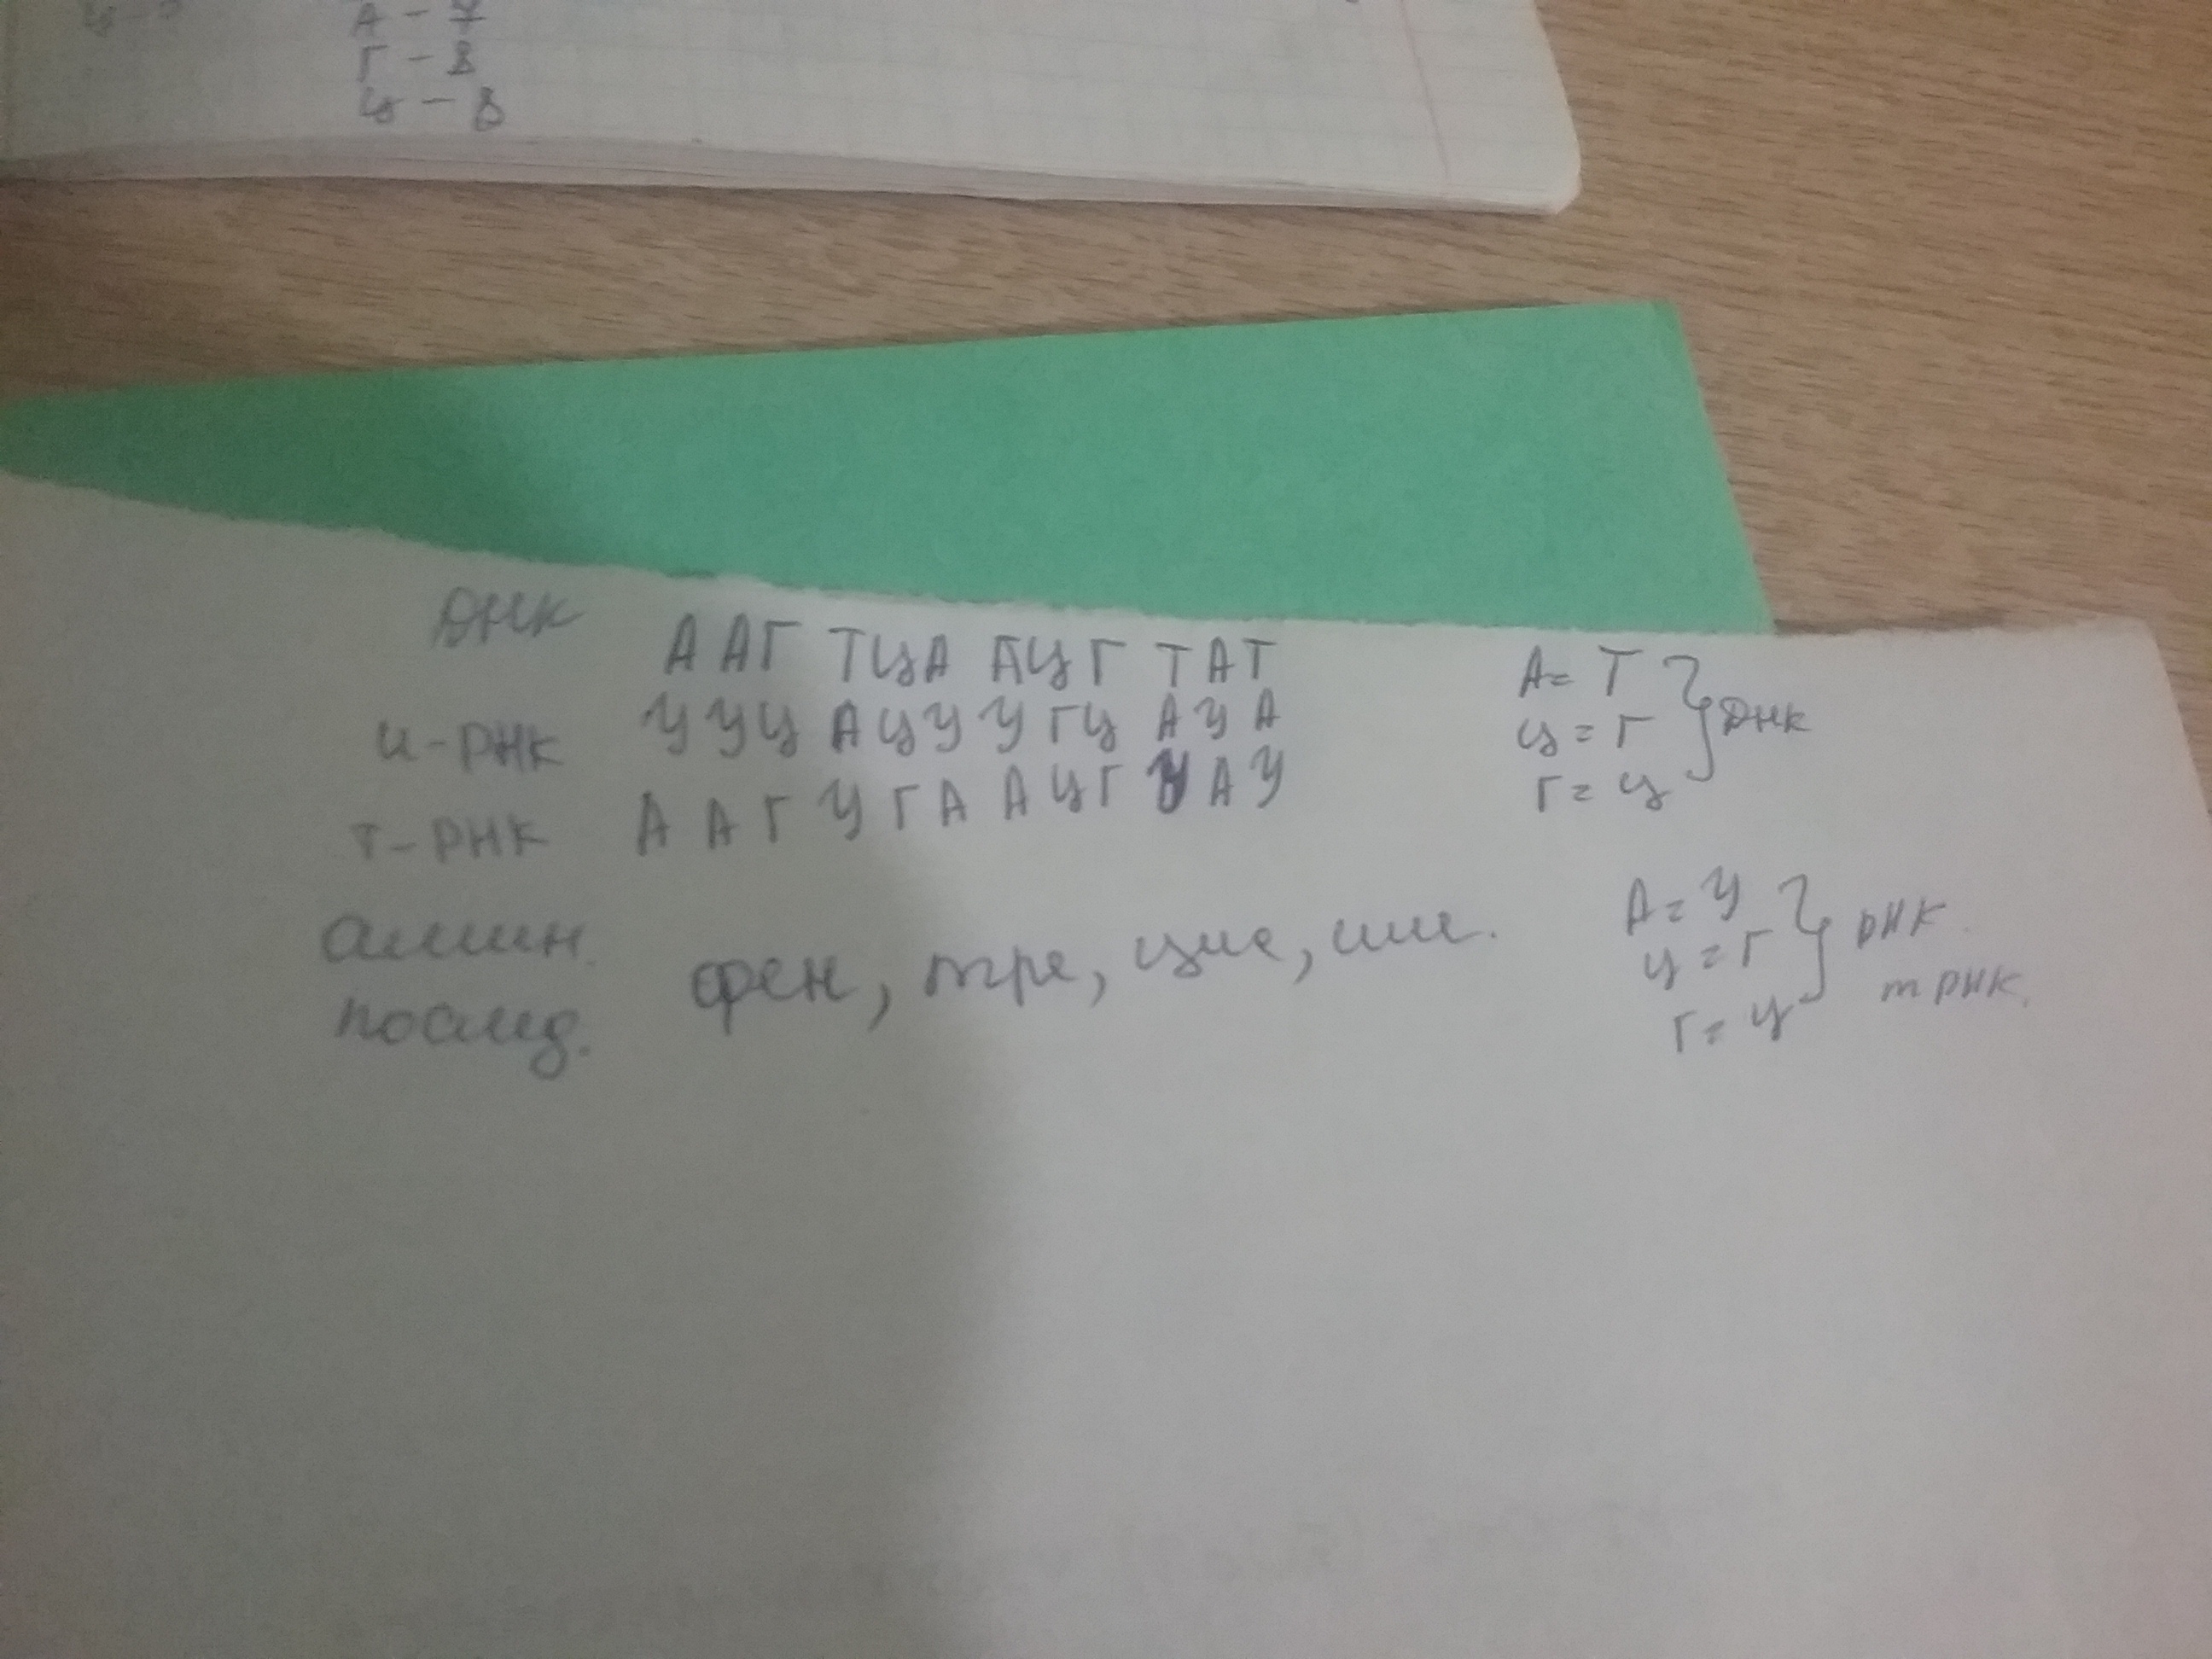 А - 7
Г - 8
Ц - 8
ДНК ААГ ТЦА АЦГ ТАТ
и-РНК УУЦ АЦУ УГЦ АУА
т-РНК ААГ УГА АЦГ УАУ
амин. послед. фен, тре, цис, иле.
А = Т
Ц = Г
Г = Ц
ДНК
А = У
Ц = Г
Г = Ц
РНК
тРНК.